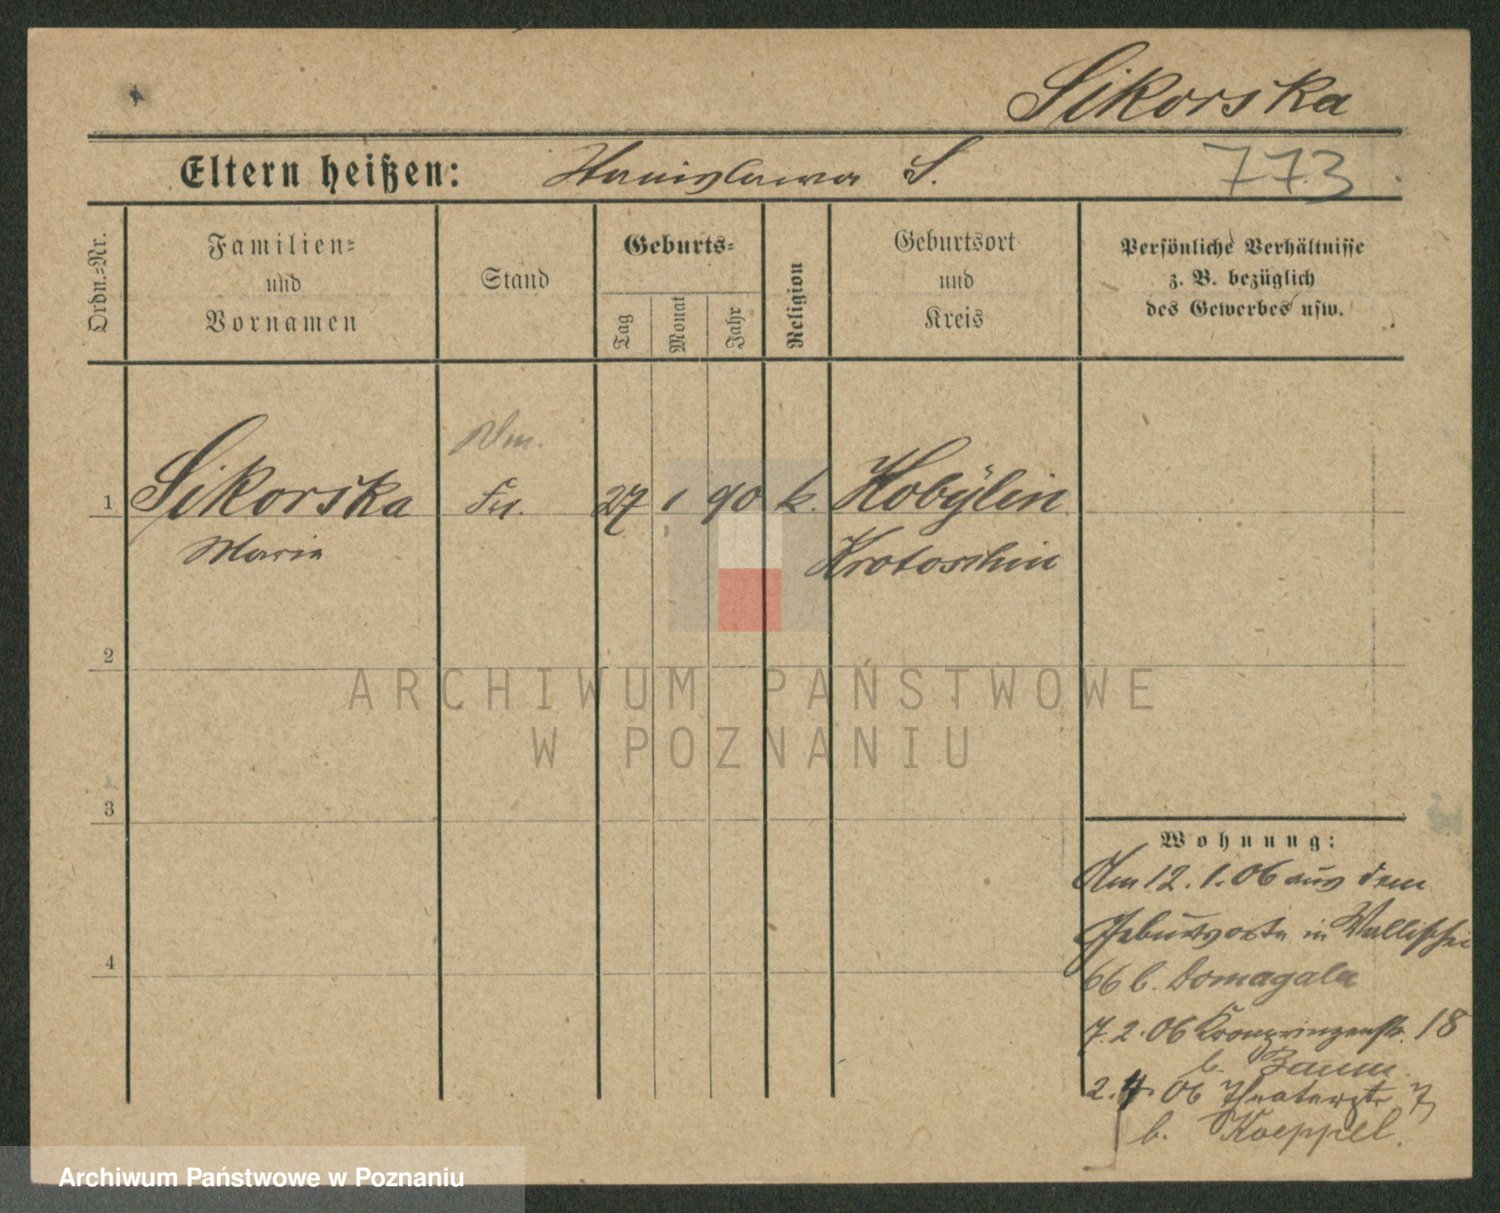 Sikorska
Eltern heißen: Stanislawa S. 773
Ordn.=Nr.
Familien=
und
Vornamen
Stand
Geburts=
Tag
Monat
Jahr
Religion
Geburtsort
und
Kreis
Persönliche Verhältnisse
z. B. bezüglich
des Gewerbes usw.
1 Sikorska Frl. 27 1 90 k. Kobylin
Maria Krotoschin
2
3
4
ARCHIWUM PAŃSTWOWE
W POZNANIU
Wohnung:
Am 12.1.06 aus dem
Geburtsorte in Wallischei
66 b. Domagala
7.2.06 Kronprinzenstr. 18
b. Baum
2.4.06 Theaterstr. 7
b. Koeppel.
Archiwum Państwowe w Poznaniu